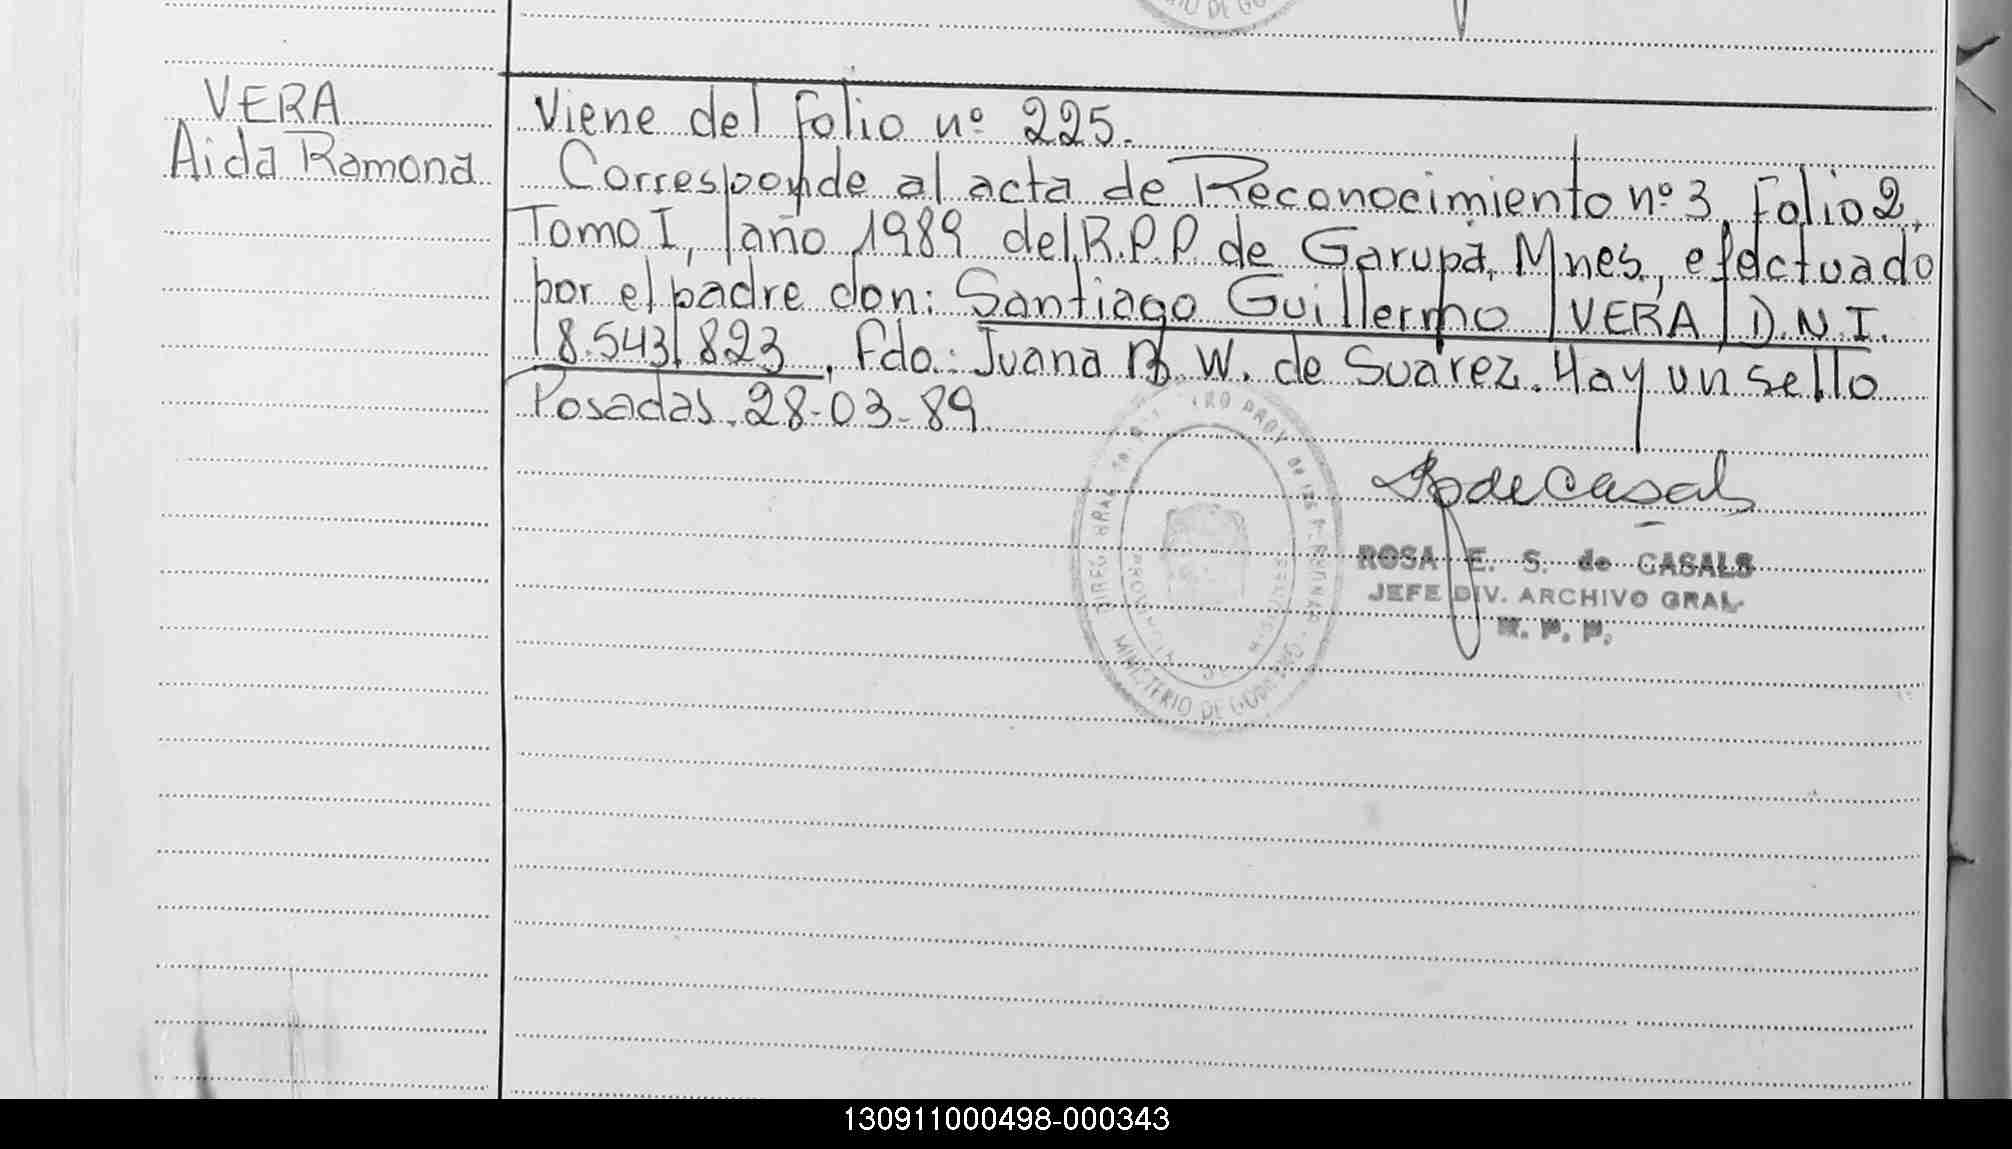 VERA
Aida Ramona
Viene del folio nº 225.
Corresponde al acta de Reconocimiento nº 3, Folio 2,
Tomo I, año 1989 del R.P.P. de Garupá, Mnes, efectuado
por el padre don: Santiago Guillermo VERA D.N.I.
8.543.823, Fdo: Juana W. de Suárez. Hay un sello
Posadas, 28-03-89.
de Casals
ROSA E. S. de CASALS
JEFE DIV. ARCHIVO GRAL.
R. P. P.
MINISTERIO DE GOBIERNO
130911000498-000343